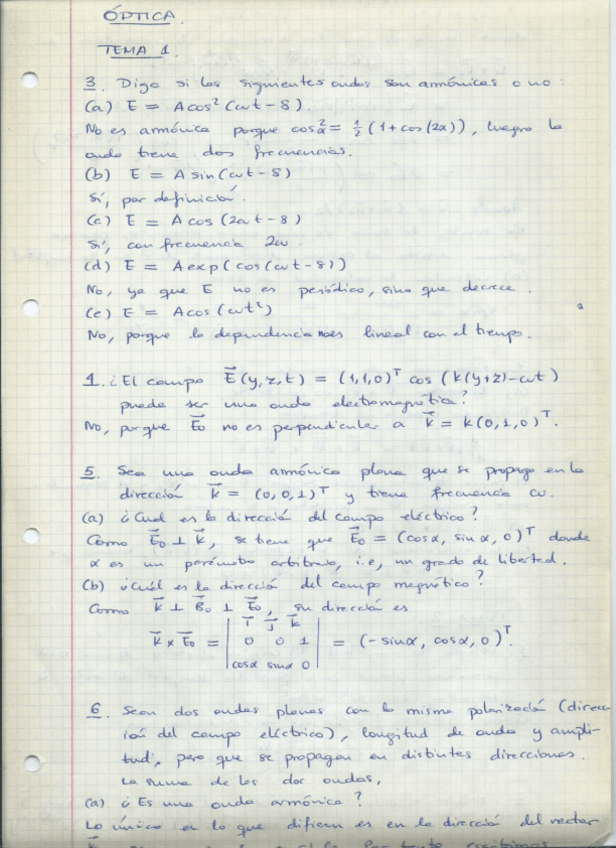 ÓPTICA.
TEMA 1.
3. Diga si las siguientes ondas son armónicas o no:
(a) E = A cos² (ωt - δ).
No es armónica porque cos²α = 1/2 (1 + cos(2α)), luego la
onda tiene dos frecuencias.
(b) E = A sin(ωt - δ)
Sí, por definición.
(c) E = A cos (2ωt - δ)
Sí, con frecuencia 2ω.
(d) E = A exp( cos(ωt - δ))
No, ya que E no es periódico, sino que decrece.
(e) E = A cos(ωt²)
No, porque la dependencia no es lineal con el tiempo.
1. ¿El campo E⃗(y,z,t) = (1,1,0)ᵀ cos (k(y+z)-ωt)
puede ser una onda electromagnética?
No, porque E⃗o no es perpendicular a k⃗ = k(0,1,0)ᵀ.
5. Sea una onda armónica plana que se propaga en la
dirección k⃗ = (0,0,1)ᵀ y tiene frecuencia ω.
(a) ¿Cuál es la dirección del campo eléctrico?
Como E⃗o ⊥ k⃗, se tiene que E⃗o = (cosα, sinα, 0)ᵀ donde
α es un parámetro arbitrario, i.e, un grado de libertad.
(b) ¿Cuál es la dirección del campo magnético?
Como k⃗ ⊥ B⃗o ⊥ E⃗o, su dirección es
i⃗ j⃗ k⃗
k⃗ × E⃗o = | 0 0 1 | = (-sinα, cosα, 0)ᵀ.
cosα sinα 0
6. Sean dos ondas planas con la misma polarización (direc-
ción del campo eléctrico), longitud de onda y ampli-
tud, pero que se propagan en distintas direcciones.
La suma de las dos ondas,
(a) ¿Es una onda armónica?
Lo único en lo que difieren es en la dirección del vector
k⃗ Por tanto